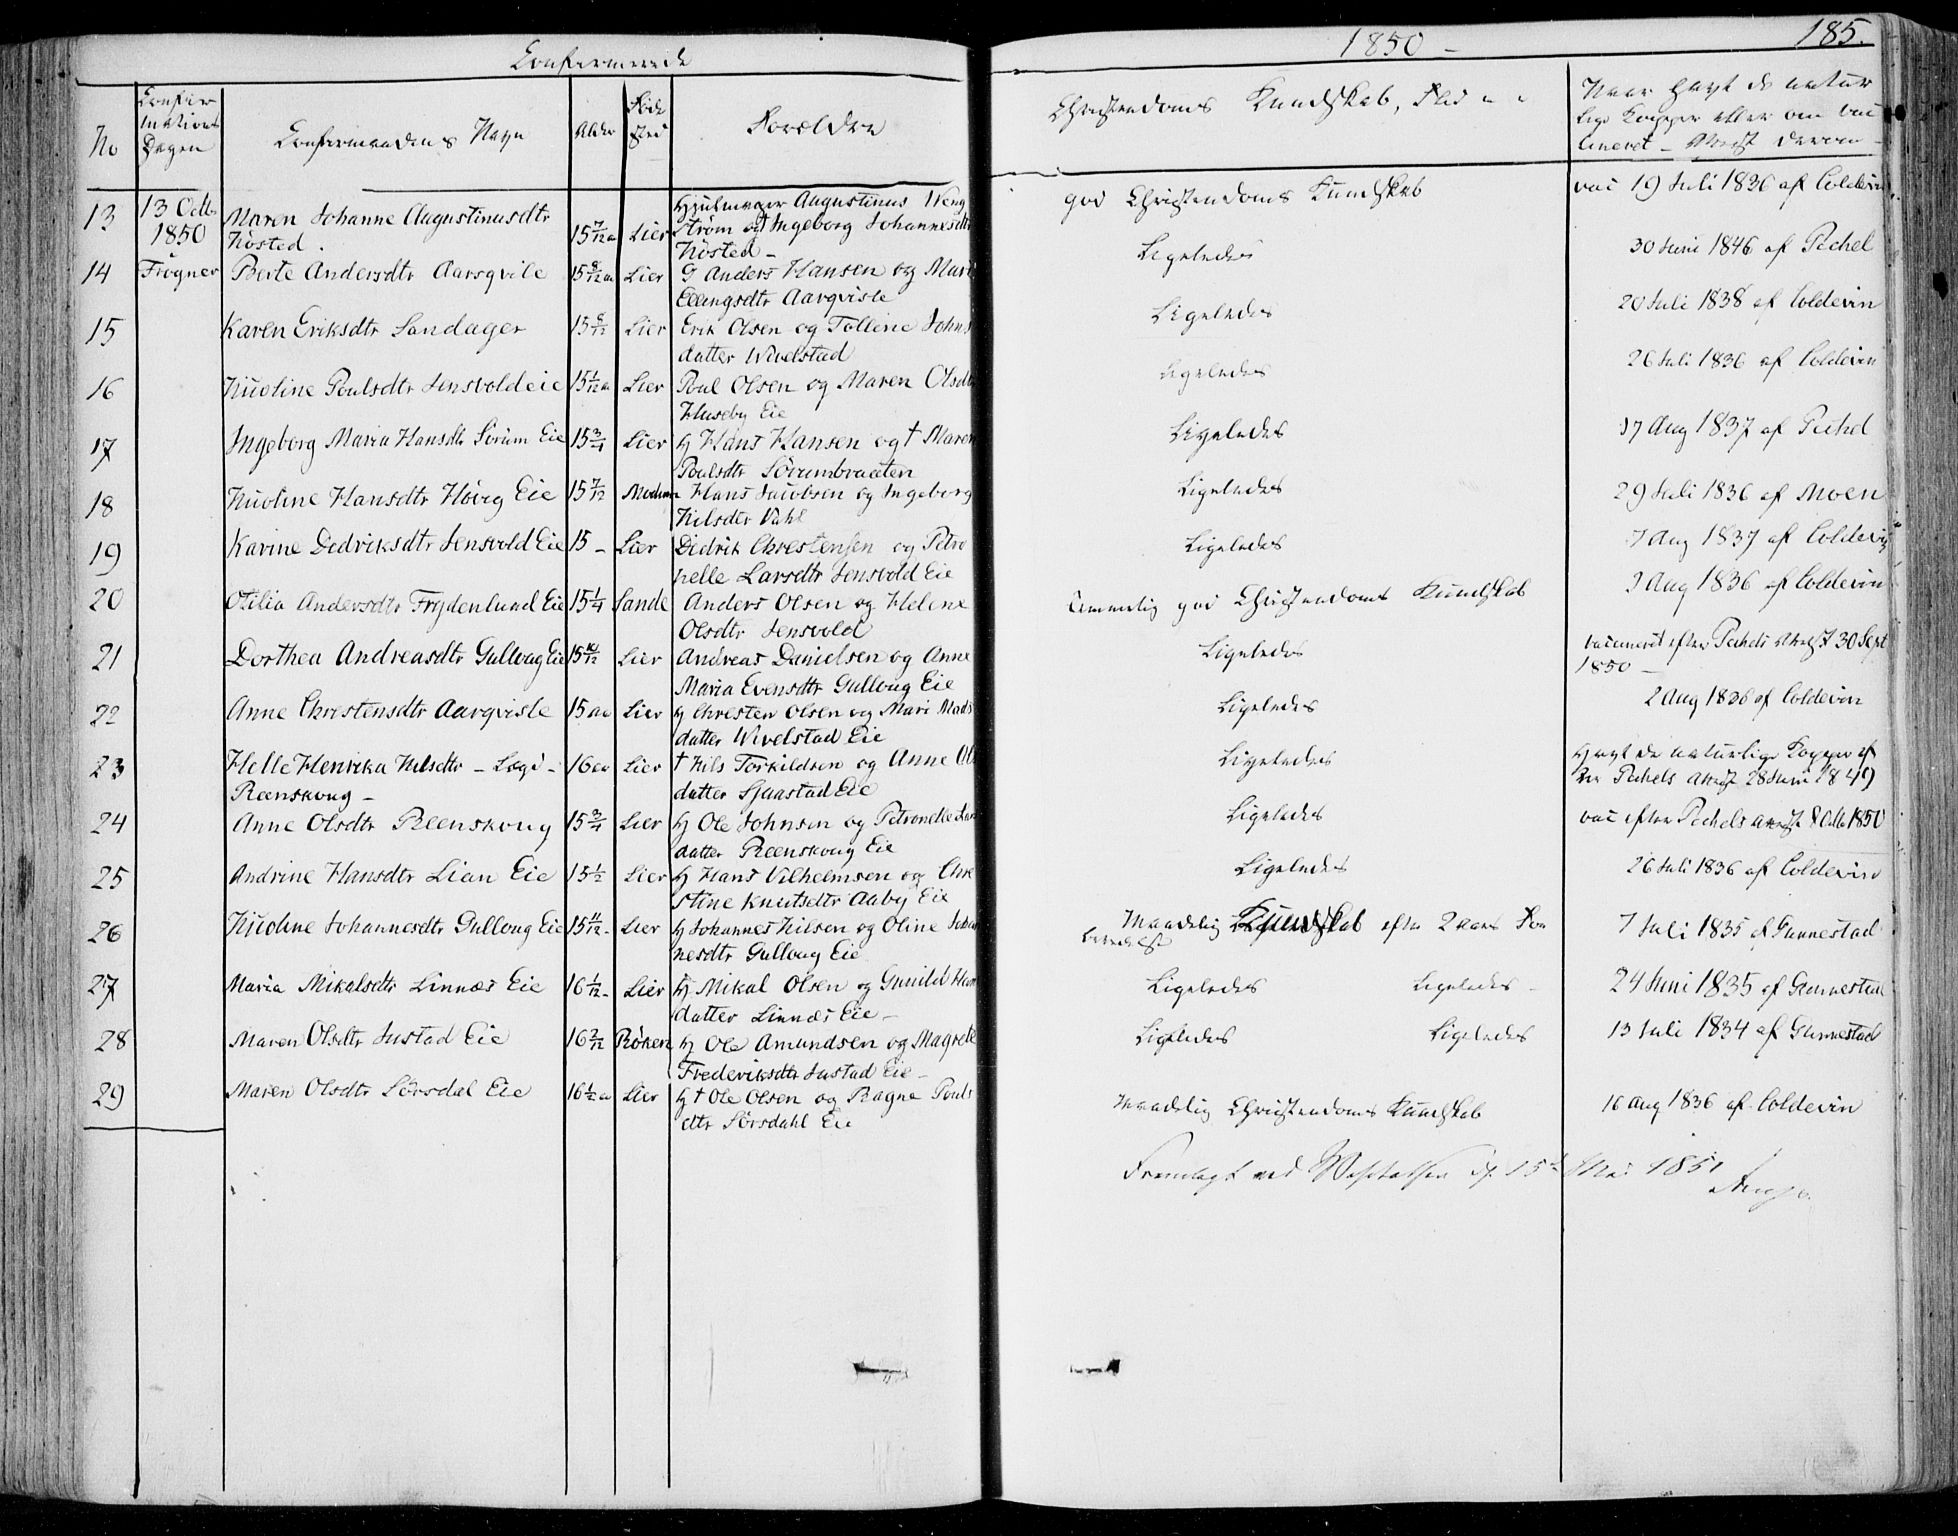 Confirmerede
1850 –
185.
No
Confir
mations
Dagen
Confirmandens Navn
Alder
Føde
sted
Forældre
Christendoms Kundskab, Flid " "
Naar havt de natur
lige Kopper eller om vac
cineret – Attest derom –
13
13 Octb
1850
Maren Johanne Augustinusdtr
Nøsted .
15 7/12 a
Lier
Hjulmager Augustinus Weng
strøm og Ingeborg Johannesdtr
Nøsted –
god Christendoms Kundskab
vac 19 Juli 1836 af Coldevin
14
Frogner
Berte Andersdtr Aarsqvile
15 8/12 aa
Lier
G Anders Hansen og Mari
Ellingsdtr Aarqvisle
Ligeledes
30 Juni 1846 af Pichel
15
Karen Eriksdtr Sandager
15 8/12
Lier
Erik Olsen og Tolline Johns
datter Wivelstad
Ligeledes
20 Juli 1838 af Coldevin
16
Nicoline Poulsdtr Jensvold eie
15 1/12 a
Lier
Poul Olsen og Maren Olsdtr
Huseby Eie
Ligeledes
26 Juli 1836 af Coldevin
17
Ingeborg Maria Hansdtr Sørum Eie
15 3/4
Lier
H Hans Hansen og † Maren
Poulsdtr Sørumbraaten
Ligeledes
17 Aug 1837 af Pichel
18
Nicoline Hansdtr Høvig Eie
15 7/12
Modum
Hans Jacobsen og Ingeborg
Nilsdtr Vahl
Ligeledes
29 Juli 1836 af Moen
19
Karine Dedriksdtr Jensvold Eie
15 –
Lier
Didrik Chrestensen og Petro
nelle Larsdtr Jensvold Eie
Ligeledes
7 Aug 1837 af Coldevin
20
Otilia Andersdtr Frydenlund Eie
15 1/4
Sande
Anders Olsen og Helene
Olsdtr Jensvold
temmelig god Christendoms Kundskab
3 Aug 1836 af Coldevin
21
Dorthea Andreasdtr Gulloug Eie
15 10/12
Lier
Andreas Danielsen og Anne
Maria Evensdtr Gulloug Eie
Ligeledes
vaccineret efter Pichels Attest 30 Sept
1850 –
22
Anne Chrestensdtr Aarqvisle
15 aa
Lier
H Chresten Olsen og Mari Mads
datter Wivelstad Eie
Ligeledes
2 Aug 1836 af Coldevin
23
Helle Henrika Nilsdtr – Logi –
Reenskoug –
16 aa
Lier
† Nils Torkildsen og Anne Ols
datter Sjaastad Eie
Ligeledes
Havt de naturlige Kopper ef
ter Pichels Attest 28 Juni 1849
24
Anne Olsdtr Reenskoug
15 3/4
Lier
H Ole Johnsen og Petronelle Lars
datter Reenskoug Eie
Ligeledes
vac efter Pichels Attest 8 Octb 1850
25
Andrine Hansdtr Lian Eie
15 1/2
Lier
H Hans Vilhelmsen og Chre
stine Knutsdtr Aaby Eie
Ligeledes
26 Juli 1836 af Coldevin
26
Nicoline Johannesdtr Gulloug Eie
15 11/12 –
Lier
H Johannes Nilsen og Oline Johan
nesdtr Gulloug Eie
Maadelig Kundskab efter 2 aars For
beredelse
7 Juli 1835 af Gunnestad
27
Maria Mikalsdtr Linnæs Eie
16 1/12 –
Lier
H Mikal Olsen og Gunild Hans
datter Linnæs Eie –
Ligeledes Ligeledes –
24 Juni 1835 af Gunnestad
28
Maren Olsdtr Justad Eie
16 2/12
Röken
H Ole Amundsen og Magrete
Frederiksdtr Justad Eie –
Ligeledes Ligeledes
13 Juli 1834 af Gunnestad
29
Maren Olsdtr Sørsdal Eie
16 1/2 a
Lier
H † Ole Olsen og Ragne Pouls
dtr Sørsdahl Eie
Maadelig Christendoms Kundskab
16 Aug 1836 af Coldevin
Fremlagt ved Visitatsen d. 15 Mai 1851